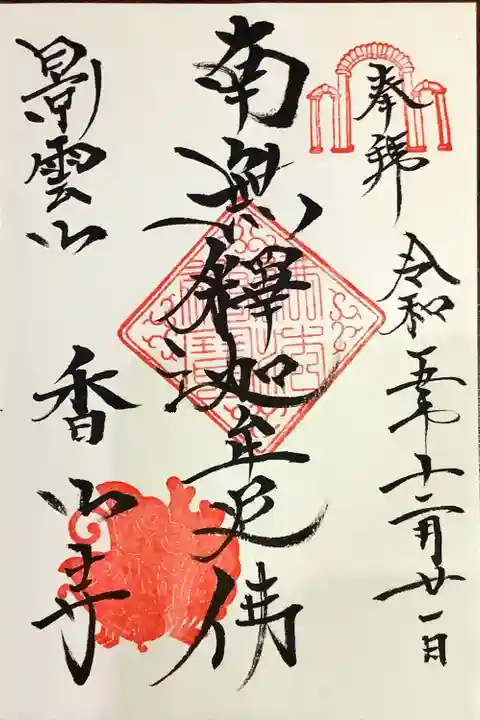 奉拝
令和五年十二月廿一日
南無釋迦牟尼佛
景雲山 香山寺